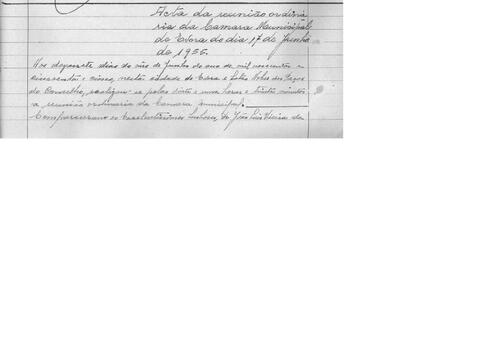 Acta da reunião ordiná
ria da Camara Municipal
de Evora do dia 17 de Junho
de 1955.
Aos dezassete dias do mês de Junho do ano de mil novecentos e
cincoenta e cinco, nesta cidade de Evora e Salão Nobre dos Paços
do Concelho, realizou-se pelas vinte e uma horas e trinta minutos
a reunião ordinaria da Camara Municipal.
Compareceram os Excelentissimos Senhores, Dr. João Luis Vieira da